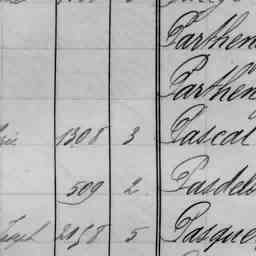 Parthen
Parthen
1308 3 Pascal
509 2 Pasdel
Joseph 2158 5 Pasque